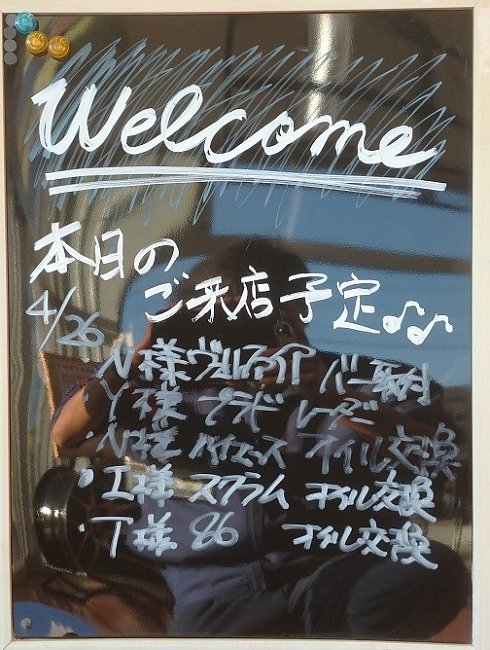 Welcome
本日の
4/26 ご来店予定♪♪
・N様 ヴェルファイア バー取付
・Y様 プラド レーダー
・N様 ハイエース オイル交換
・I様 スクラム オイル交換
・T様 86 オイル交換